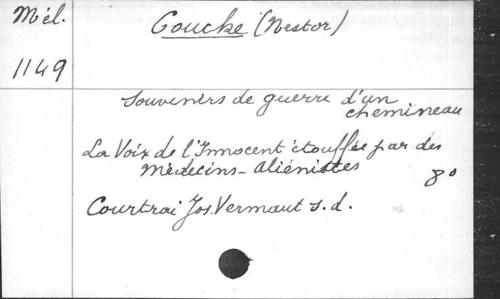 Mél. Goucke (Nestor)
1149
Souvenirs de guerre d'un
chemineau
La Voix de l'Innocent étouffée par des
médecins-aliénistes
8°
Courtrai Jos. Vermaut s.d.